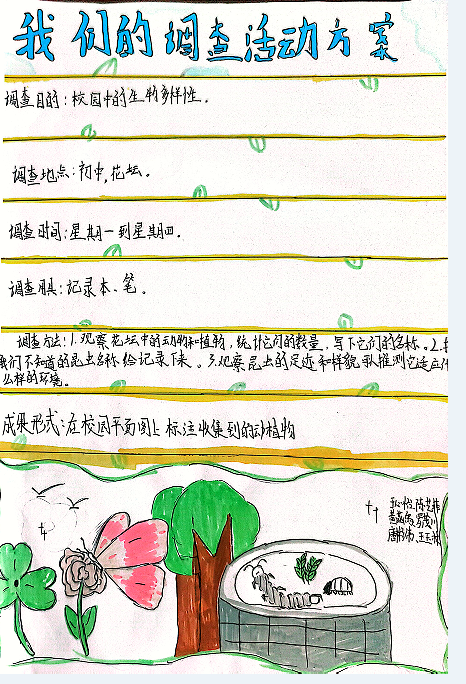 我们的调查活动方案
调查目的:校园中的生物多样性。
调查地点:初中,花坛。
调查时间:星期一到星期四。
调查用具:记录本、笔。
调查方法:1.观察花坛中的动物和植物,统计它们的数量,写下它们的名称。2.
我们不知道的昆虫名称给记录下来。3.观察昆虫的足迹和样貌来推测它适应什
么样的环境。
成果形式:在校园平面图上标注收集到的动植物